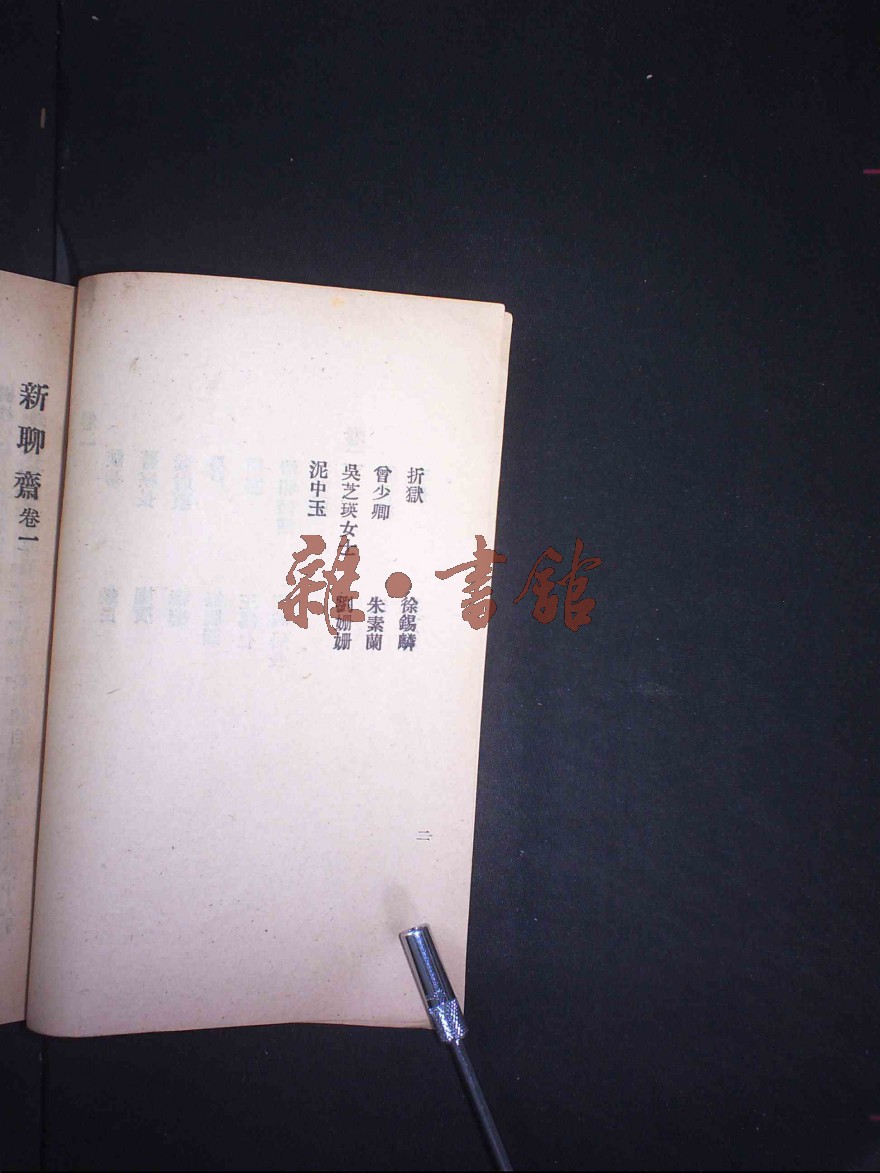 折獄　徐錫麟
曾少卿　朱素蘭
吳芝瑛女士　劉姍姍
泥中玉
二
新聊齋卷一
雜・書館